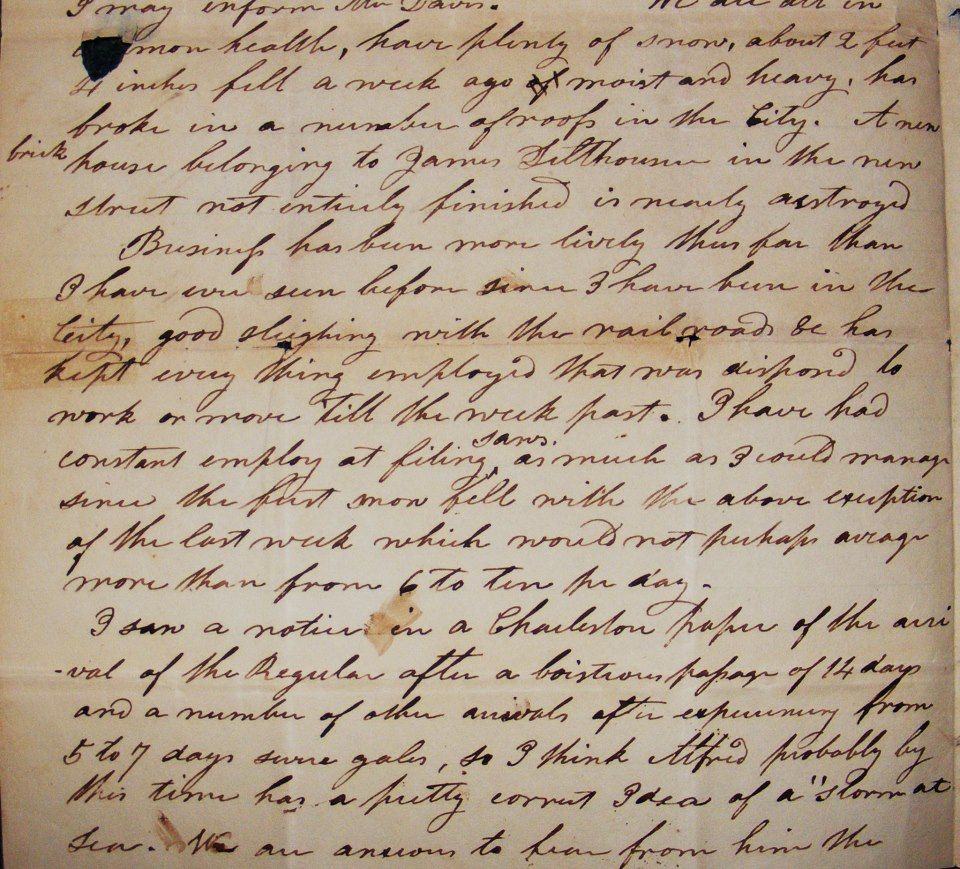 I may inform Mr Davis. We are all in
common health, have plenty of snow, about 2 feet
4 inches fell a week ago moist and heavy, has
broke in a number of roofs in the City. A new
brick house belonging to James Silthouse in the new
street not entirely finished is nearly destroyed
Business has been more lively thus far than
I have ever seen before since I have been in the
City, good sleighing with the rail roads &c has
kept every thing employed that was disposed to
work or move till the week past. I have had
constant employ at filing saws. as much as I could manage
since the first snow fell with the above exception
of the last week which would not perhaps average
more than from 6 to ten pr day.
I saw a notice in a Charleston paper of the arri
-val of the Regular after a boisterous passage of 14 days
and a number of other arrivals after experiencing from
5 to 7 days severe gales, so I think Alfred probably by
this time has a pretty correct Idea of a "storm at
sea. We are anxious to hear from him the